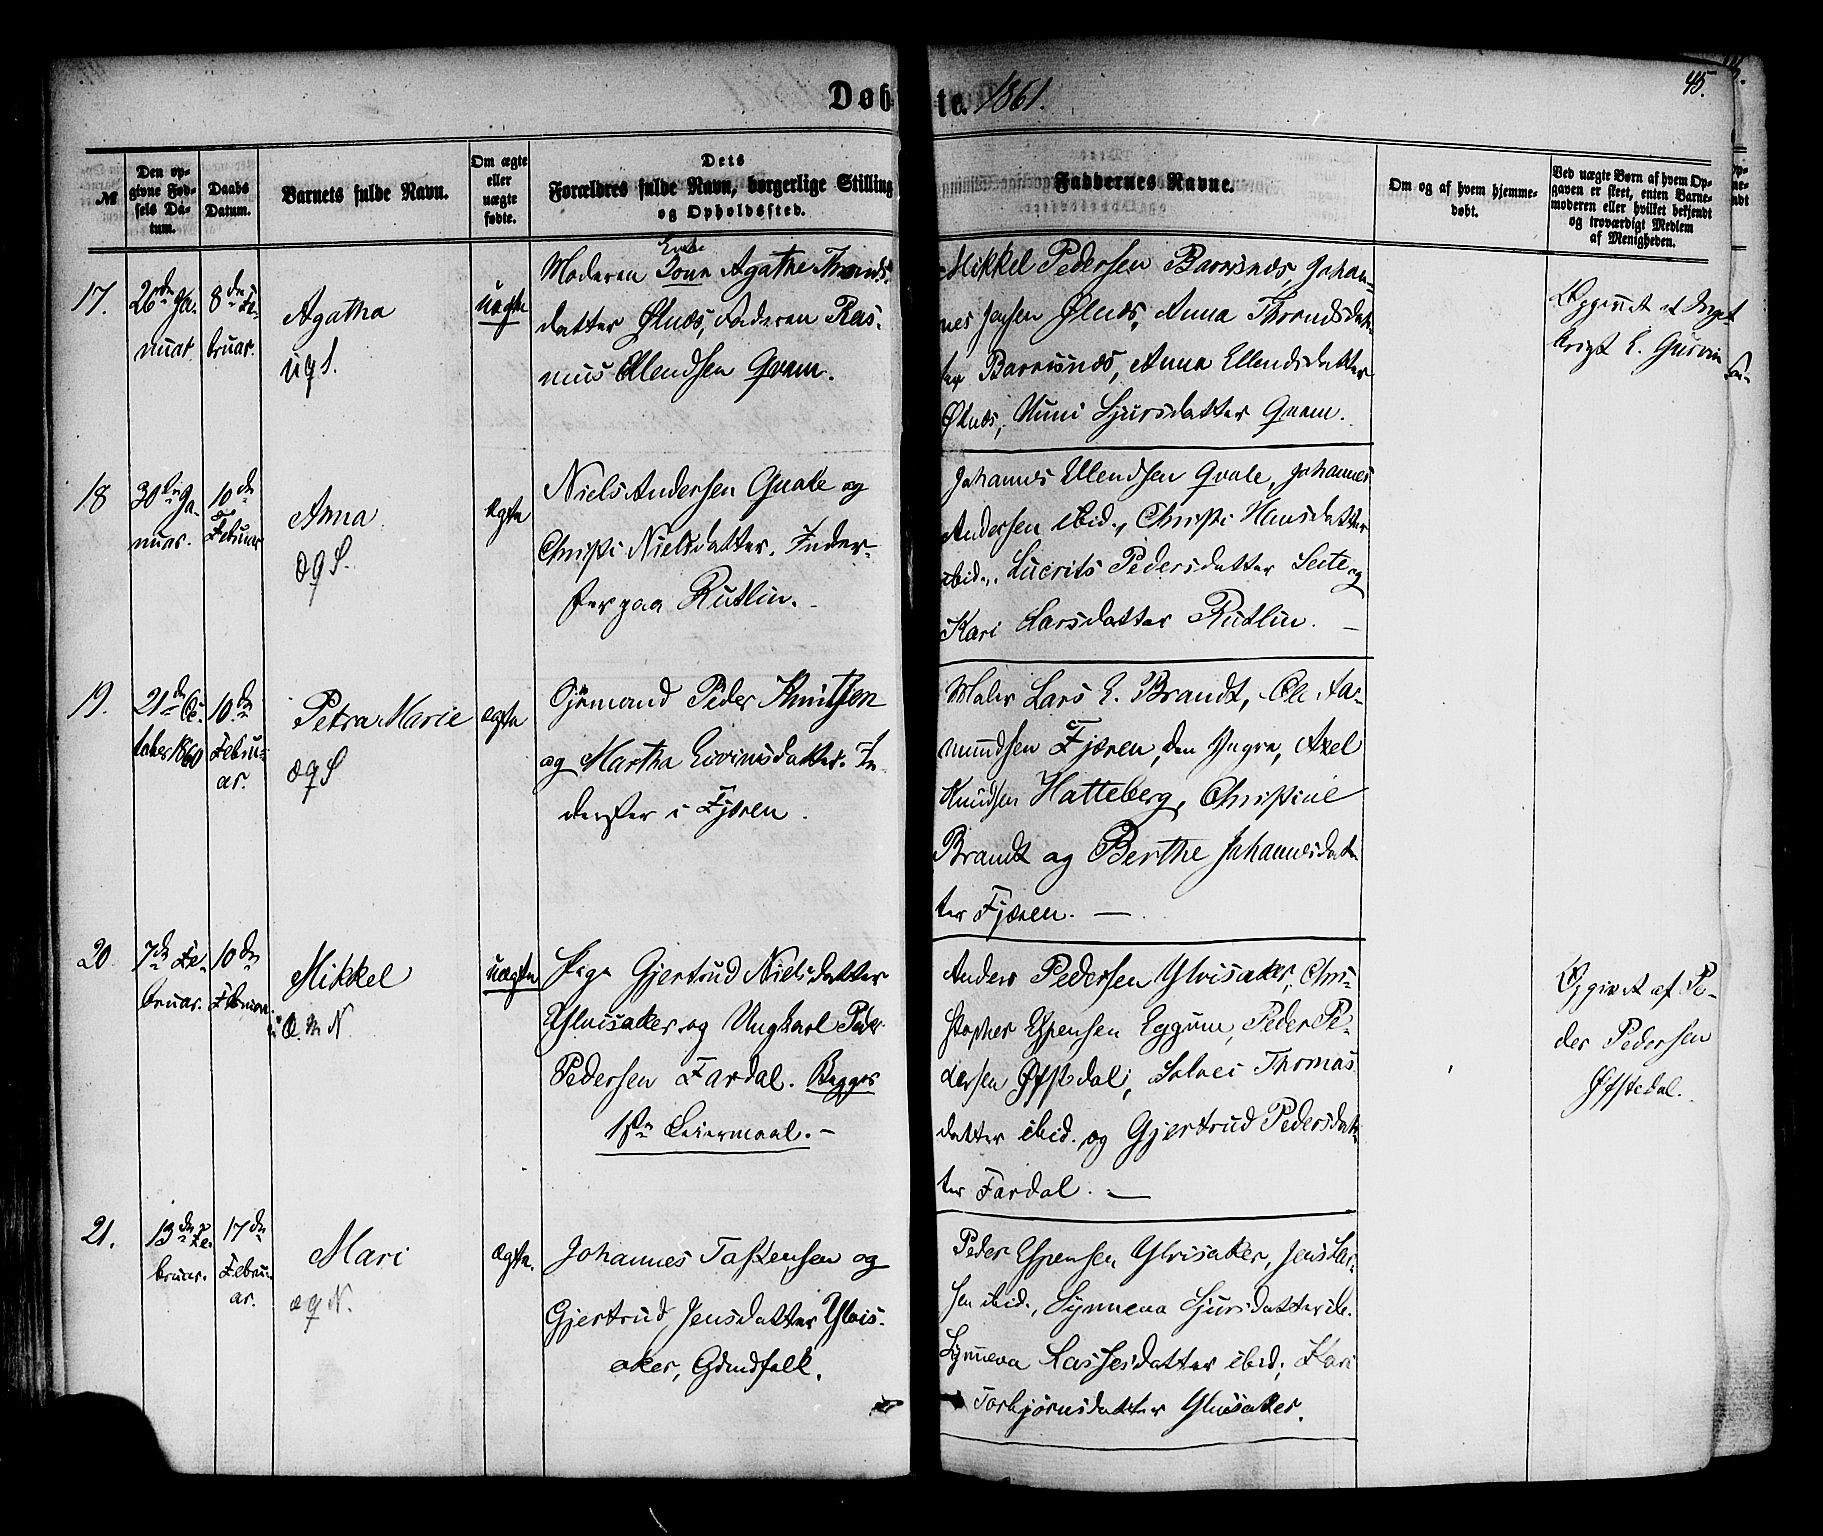 Døbte. 1861.
45.
№
Den opgivne Fødsels Datum.
Daabs Datum.
Barnets fulde Navn.
Om ægte eller uægte fødte.
Dets Forældres fulde Navn, borgerlige Stilling og Opholdssted.
Faddernes Navne.
Om og af hvem hjemmedøbt.
Ved uægte Børn af hvem Opgaven er skeet, enten Barnemoderen eller hvilket bekjendt og troværdigt Medlem af Menigheden.
17.
26de Ja-
nuar.
8de Fe-
bruar.
Agatha
uægte
Moderen Enke Agathe Thronds-
datter Ølnæs, Faderen Ras-
mus Ellendsen Qvam.
Mikkel Pedersen Barsnæs, Johan-
nes Jensen Ølnæs, Anna Throndsdat-
ter Barsnæs, Anna Ellendsdatter
Ølnæs, Unni Sjursdatter Qvam.
Opgivet af
18
30te Ja-
nuar.
10de
Februar
Anna
ægte
Niels Andersen Qvale og
Christi Nielsdatter. Inder-
ster paa Rutlin.
Johannes Ellendsen Qvale, Johannes
Andersen ibid., Christi Hansdatter
ibid., Lucrits Pedersdatter Seite og
Kari Larsdatter Rutlin. –
19.
21de Oc-
tober 1860
10de
Febru-
ar.
Petra Marie
ægte
Gjømand Peder Knutsen
og Martha Eivinsdatter. In-
derster i Fjæren.
Maler Lars E. Brandt, Ole Aa-
mundsen Fjæren, den Yngre, Axel
Knudsen Hatteberg, Christine
Brandt og Berthe Johannesdat-
ter Fjæren. –
20
7de Fe-
bruar.
10de
Februar
Mikkel
uægte
Pige Gjertrud Nielsdatter
Ylvisaker og Ungkarl Peder
Pedersen Fardal. Begges
1ste Leiermaal. –
Anders Pedersen Ylvisaker, Chri-
stopher Espensen Eggum, Peder Pe-
dersen Øfstedal, Solvei Thomas
datter ibid. og Gjertrud Pedersdat-
ter Fardal. –
Opgivet af Pe-
der Pedersen
Øfstedal.
21.
13de Fe-
bruar.
17de
Febru-
ar.
Mari
ægte.
Johannes Tostensen og
Gjertrud Jensdatter Ylvis-
aker, Gaardfolk.
Peder Espensen Ylvisaker, Jens Lar-
sen ibid., Synneva Sjursdatter ib.
Synneva Lassesdatter ibid; Kari
Torbjørnsdatter Ylvisaker.